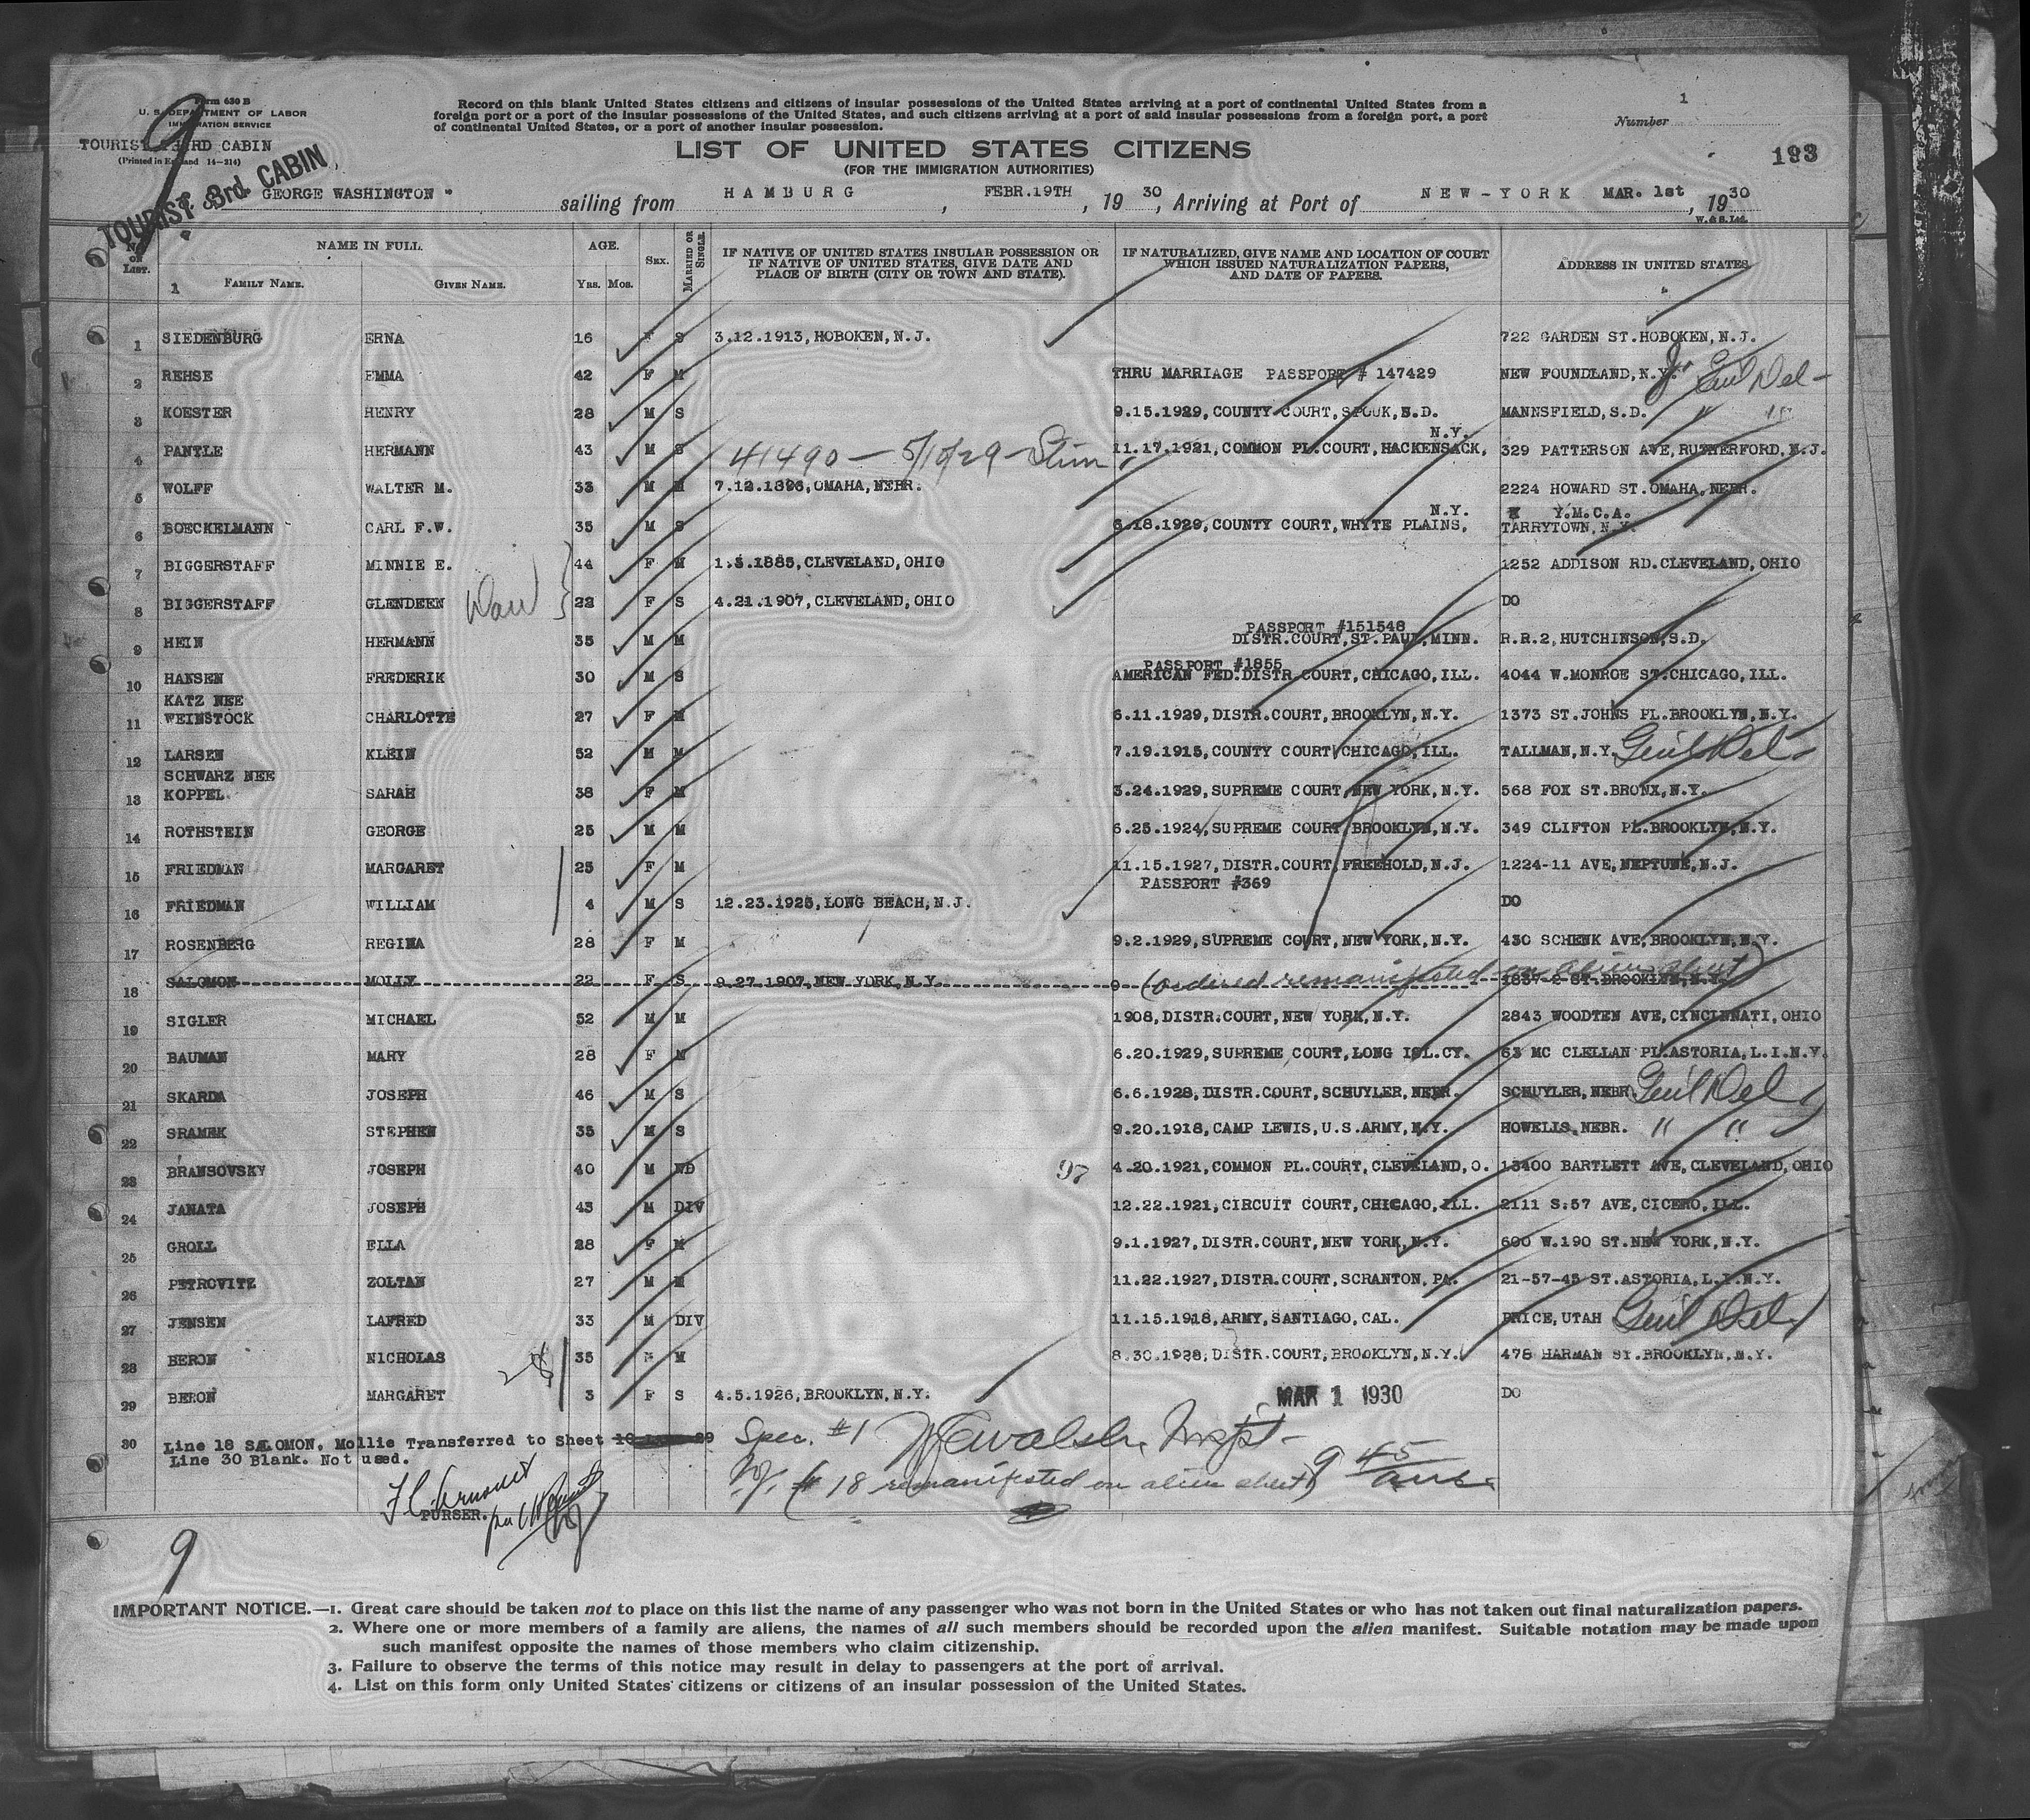 Form 630 B
U. S. DEPARTMENT OF LABOR
IMMIGRATION SERVICE
TOURIST THIRD CABIN
(Printed in England 14-314)
TOURIST 3rd. CABIN
9
Record on this blank United States citizens and citizens of insular possessions of the United States arriving at a port of continental United States from a
foreign port or a port of the insular possessions of the United States, and such citizens arriving at a port of said insular possessions from a foreign port, a port
of continental United States, or a port of another insular possession.
Number 1
193
LIST OF UNITED STATES CITIZENS
(FOR THE IMMIGRATION AUTHORITIES)
GEORGE WASHINGTON " sailing from HAMBURG, FEBR.19TH, 19 30, Arriving at Port of NEW-YORK MAR. 1st, 19 30
W. & S. Ltd.
No. on List. NAME IN FULL. AGE. SEX. MARRIED OR SINGLE. IF NATIVE OF UNITED STATES INSULAR POSSESSION OR IF NATIVE OF UNITED STATES, GIVE DATE AND PLACE OF BIRTH (CITY OR TOWN AND STATE). IF NATURALIZED, GIVE NAME AND LOCATION OF COURT WHICH ISSUED NATURALIZATION PAPERS, AND DATE OF PAPERS. ADDRESS IN UNITED STATES.
1 FAMILY NAME. GIVEN NAME. Yrs. Mos.
1 SIEDENBURG ERNA 16 F S 3.12.1913, HOBOKEN, N.J. 722 GARDEN ST.HOBOKEN, N.J.
2 REHSE EMMA 42 F M THRU MARRIAGE PASSPORT # 147429 NEW FOUNDLAND, N.Y. J. Genl Del-
3 KOESTER HENRY 28 M S 9.15.1929, COUNTY COURT, S.D. MANNSFIELD, S.D. " "
4 PANTLE HERMANN 43 M S 41490 - 5/10/29 - 11.17.1921, COMMON PL.COURT, HACKENSACK, N.Y. 329 PATTERSON AVE, RUTHERFORD, N.J.
5 WOLFF WALTER M. 33 M M 7.12.1896, OMAHA, NEBR. 2224 HOWARD ST.OMAHA, NEBR.
6 BOECKELMANN CARL F.W. 35 M S 6.18.1929, COUNTY COURT, WHYTE PLAINS, N.Y. Y.M.C.A. TARRYTOWN, N.Y.
7 BIGGERSTAFF MINNIE E. 44 F M 1.5.1885, CLEVELAND, OHIO 1252 ADDISON RD.CLEVELAND, OHIO
8 BIGGERSTAFF GLENDEEN 22 F S 4.21.1907, CLEVELAND, OHIO DO
9 HEIN HERMANN 35 M M PASSPORT #151548 DISTR.COURT, ST.PAUL, MINN. R.R.2, HUTCHINSON, S.D.
10 HANSEN FREDERIK 30 M S PASSPORT #1855 AMERICAN FED.DISTR.COURT, CHICAGO, ILL. 4044 W.MONROE ST.CHICAGO, ILL.
11 KATZ NEE WEINSTOCK CHARLOTTE 27 F M 6.11.1929, DISTR.COURT, BROOKLYN, N.Y. 1373 ST.JOHNS PL.BROOKLYN, N.Y.
12 LARSEN KLEIN 52 M M 7.19.1915, COUNTY COURT CHICAGO, ILL. TALLMAN, N.Y. Genl Del-
13 SCHWARZ NEE KOPPEL SARAH 38 F M 3.24.1929, SUPREME COURT, NEW YORK, N.Y. 568 FOX ST.BRONX, N.Y.
14 ROTHSTEIN GEORGE 25 M M 6.25.1924, SUPREME COURT BROOKLYN, N.Y. 349 CLIFTON PL.BROOKLYN, N.Y.
15 FRIEDMAN MARGARET 25 F M 11.15.1927, DISTR.COURT, FREEHOLD, N.J. 1224-11 AVE, NEPTUNE, N.J.
PASSPORT #369
16 FRIEDMAN WILLIAM 4 M S 12.23.1925, LONG BEACH, N.J. DO
17 ROSENBERG REGINA 28 F M 9.2.1929, SUPREME COURT, NEW YORK, N.Y. 430 SCHENK AVE, BROOKLYN, N.Y.
18 SALOMON MOLLY 22 F S 9.27.1907, NEW YORK, N.Y. (ordered remanifested on alien sheet) 1837-2 ST.BROOKLYN, N.Y.
19 SIGLER MICHAEL 52 M M 1908, DISTR.COURT, NEW YORK, N.Y. 2843 WOODTEN AVE, CINCINNATI, OHIO
20 BAUMAN MARY 28 F M 6.20.1929, SUPREME COURT, LONG ISL.CY. 63 MC CLELLAN PL.ASTORIA, L.I.N.Y.
21 SKARDA JOSEPH 46 M S 6.6.1928, DISTR.COURT, SCHUYLER, NEBR. SCHUYLER, NEBR. Genl Del
22 SRAMEK STEPHEN 35 M S 9.20.1918, CAMP LEWIS, U.S.ARMY, N.Y. HOWELLS, NEBR. " "
23 BRANSOVSKY JOSEPH 40 M WD 97 4.20.1921, COMMON PL.COURT, CLEVELAND, O. 13400 BARTLETT AVE, CLEVELAND, OHIO
24 JANATA JOSEPH 43 M DIV 12.22.1921, CIRCUIT COURT, CHICAGO, ILL. 2111 S.57 AVE, CICERO, ILL.
25 GROLL ELLA 28 F M 9.1.1927, DISTR.COURT, NEW YORK, N.Y. 600 W.190 ST.NEW YORK, N.Y.
26 PETROVITZ ZOLTAN 27 M M 11.22.1927, DISTR.COURT, SCRANTON, PA. 21-57-45 ST.ASTORIA, L.I.N.Y.
27 JENSEN LAFRED 33 M DIV 11.15.1918, ARMY, SANTIAGO, CAL. PRICE, UTAH Genl Del
28 BERON NICHOLAS 35 M M 8.30.1928, DISTR.COURT, BROOKLYN, N.Y. 478 HARMAN ST.BROOKLYN, N.Y.
29 BERON MARGARET 3 F S 4.5.1926, BROOKLYN, N.Y. MAR 1 1930 DO
30 Line 18 SALOMON, Mollie Transferred to Sheet
Line 30 Blank. Not used.
Spec. #1 Walsh, Insp't-
(# 18 remanifested on alien sheet) 9 45
PURSER.
9
IMPORTANT NOTICE.—1. Great care should be taken not to place on this list the name of any passenger who was not born in the United States or who has not taken out final naturalization papers.
2. Where one or more members of a family are aliens, the names of all such members should be recorded upon the alien manifest. Suitable notation may be made upon
such manifest opposite the names of those members who claim citizenship.
3. Failure to observe the terms of this notice may result in delay to passengers at the port of arrival.
4. List on this form only United States citizens or citizens of an insular possession of the United States.